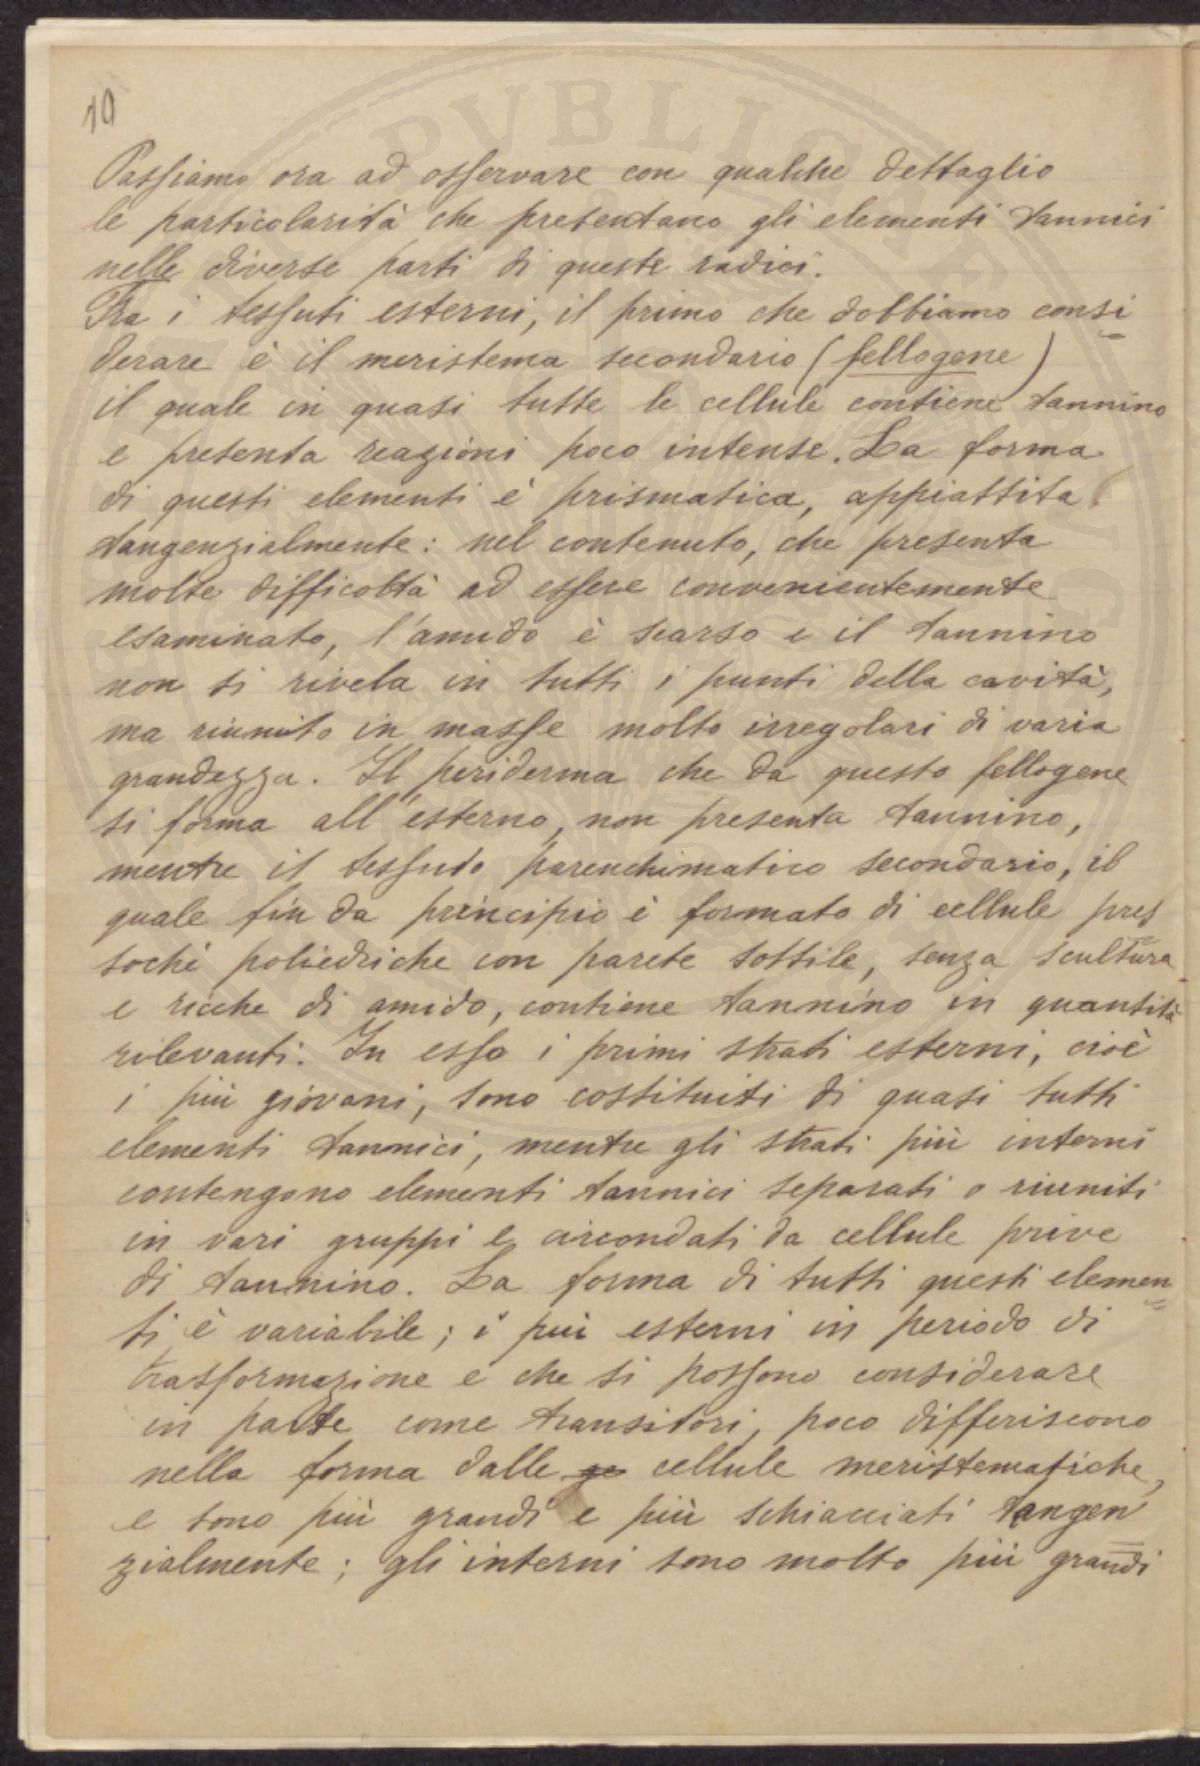 10
Passiamo ora ad osservare con qualche dettaglio
le particolarità che presentano gli elementi tannici
nelle diverse parti di queste radici.
Tra i tessuti esterni, il primo che dobbiamo consi
derare è il meristema secondario (fellogene)
il quale in quasi tutte le cellule contiene tannino
e presenta reazioni poco intense. La forma
di questi elementi è prismatica, appiattita
tangenzialmente: nel contenuto, che presenta
molte difficoltà ad essere convenientemente
esaminato, l'amido è scarso e il tannino
non si rivela in tutti i punti della cavità,
ma riunito in masse molto irregolari di varia
grandezza. Il periderma che da questo fellogene
si forma all'esterno, non presenta tannino,
mentre il tessuto parenchimatico secondario, il
quale fin da principio è formato di cellule pres
sochè poliedriche con parete sottile, senza scultura
e ricche di amido, contiene tannino in quantità
rilevanti. In esso i primi strati esterni, cioè
i più giovani, sono costituiti di quasi tutti
elementi tannici, mentre gli strati più interni
contengono elementi tannici separati o riuniti
in vari gruppi e circondati da cellule prive
di tannino. La forma di tutti questi elemen
ti è variabile; i più esterni in periodo di
trasformazione e che si possono considerare
in parte come transitori, poco differiscono
nella forma dalle ge cellule meristematiche,
e sono più grandi e più schiacciati tangen
zialmente; gli interni sono molto più grandi
PUBLIC